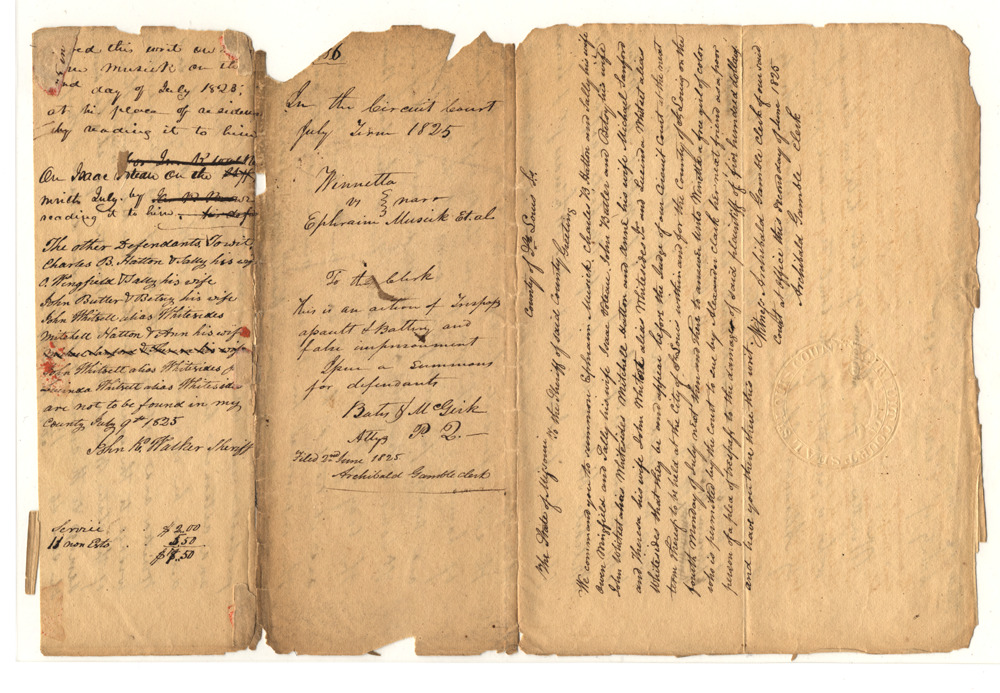 this writ on
Musick on the
day of July 1825,
at his place of residen
by reading it to him
On Isaac on the
July by
reading it to him
The other Defendants Towit
Charles B. Hatton & Sally his
O. Wingfield & Sally his wife
John Butler & Betsy his wife
John Whitsett alias Whitesides
Mitchell Hatton & Ann his wife
John Whitsett alias Whitesides &
Lucinda Whitsett alias Whiteside
are not to be found in my
County July 9th 1825
John K. Walker Sheriff
Service $2.00
11 non Ests 50
50
6
In the Circuit Court
July Term 1825
Winnetta
vs narr
Ephraim Musick Et. al
To the Clerk
this is an action of Trespass
assault & Battery and
false imprisonment
Issue a Summons
for defendants
Bates & McGirk
Attys P. Q.
Filed 2nd June 1825
Archibald Gamble clerk
The State of Missouri County of St. Louis Sc
To the Sheriff of said County Greeting
We command you to summon Ephraim Musick, Charles B. Hatton and Sally his wife
Owen Wingfield and Sally his wife Isaac John Butler and Betsy his wife
John Whitset alias Whiteside Mitchell Hatton and Anne his wife Michael Sanford
and Theresa his wife John Whitset alias Whiteside Jr. and Lucinda Whitset alias
Whitesides that they be and appear before the Judge of our Circuit Court at the next
term thereof to be held at the City of St Louis within and for the County of St. Louis on the
fourth Monday of July next then and there to answer unto a free girl of color
who is permitted by the Court to sue by Alexander Clark her next friend as a poor
person of a plea of trespass to the damage of said plaintiff of five hundred dollars
and have you there then this writ.
Witness Archibald Gamble Clerk of our said
court at office this second day of June 1825
Archibald Gamble Clerk